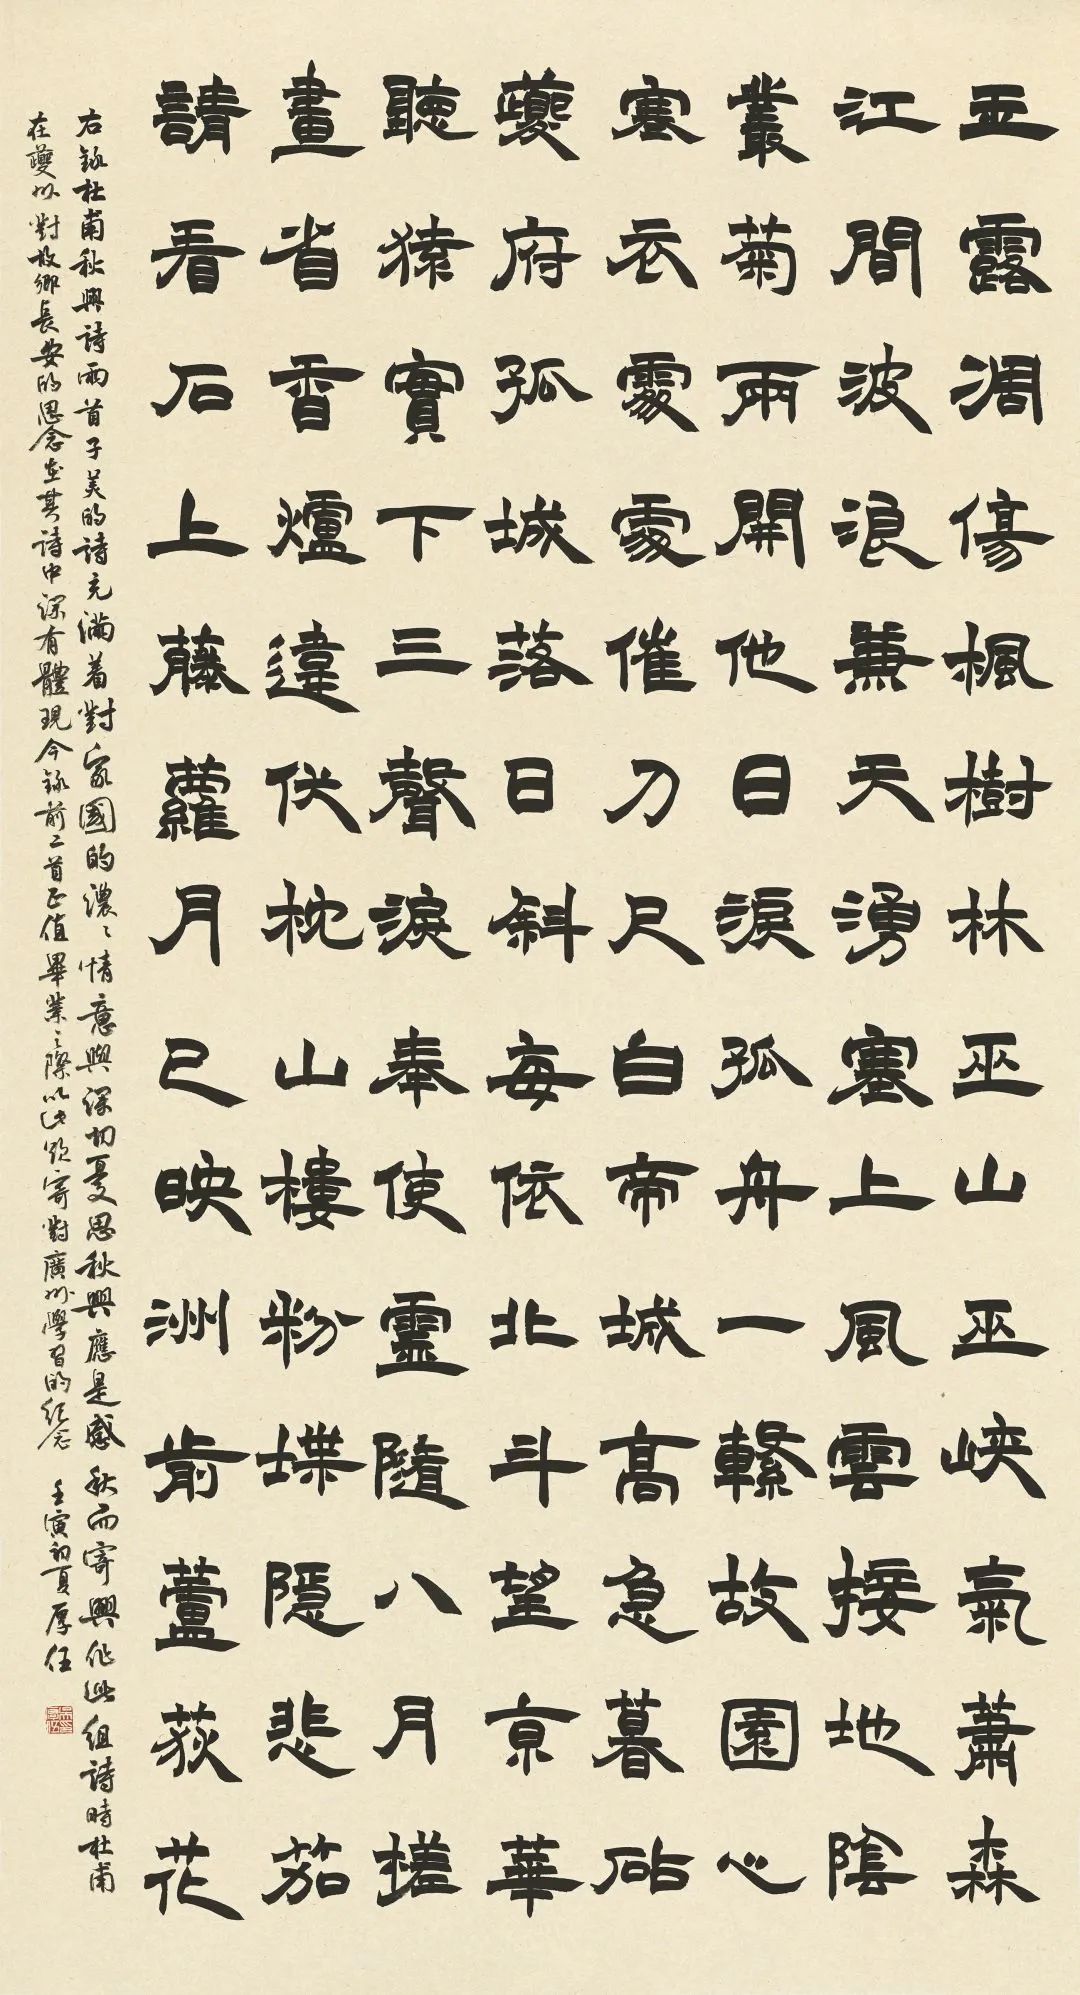 玉露凋傷楓樹林巫山巫峽氣蕭森
江間波浪兼天湧塞上風雲接地陰
叢菊兩開他日淚孤舟一繫故園心
寒衣處處催刀尺白帝城高急暮砧
夔府孤城落日斜每依北斗望京華
聽猿實下三聲淚奉使虛隨八月槎
畫省香爐違伏枕山樓粉堞隱悲笳
請看石上藤蘿月已映洲前蘆荻花
右錄杜甫秋興詩兩首子美的詩充滿着對家國的濃濃情意與深切憂思秋興應是感秋而寄興作此組詩時杜甫
在夔州對故鄉長安的思念在其詩中深有體現今錄前二首正值畢業之際以此寄對廣州學習的紀念 壬寅初夏厚任